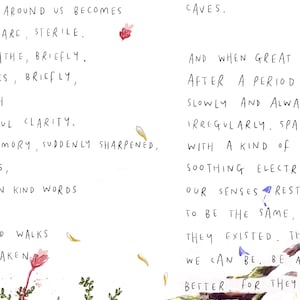 AROUND US BECOMES
ARE, STERILE.
THE, BRIEFLY.
, BRIEFLY,
UL CLARITY.
MORY, SUDDENLY SHARPENED,
N KIND WORDS
WALKS
AKEN
CAVES.
AND WHEN GREAT
AFTER A PERIOD
SLOWLY AND ALWA
IRREGULARLY. SPA
WITH A KIND OF
SOOTHING ELECTR
OUR SENSES, REST
TO BE THE SAME,
THEY EXISTED. TH
WE CAN BE. BE A
BETTER. FOR THEY